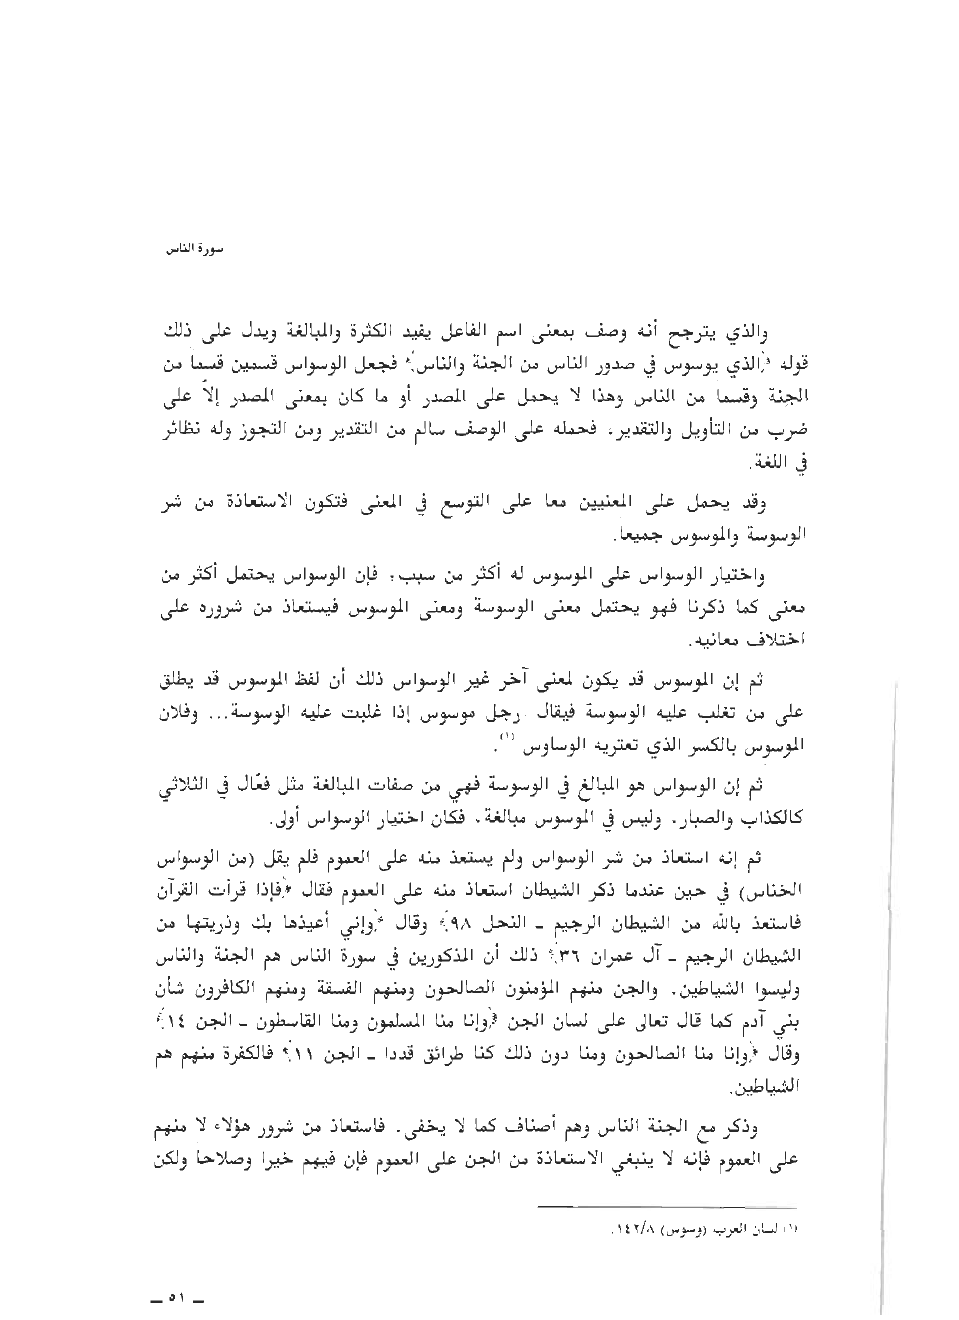 سورة الناس
والذي يترجح أنه وصف بمعنى اسم الفاعل يفيد الكثرة والمبالغة ويدل على ذلك
قوله ﴿الذي يوسوس في صدور الناس من الجنة والناس﴾ فجعل الوسواس قسمين قسما من
الجنة وقسما من الناس وهذا لا يحمل على المصدر أو ما كان بمعنى المصدر إلاّ على
ضرب من التأويل والتقدير، فحمله على الوصف سالم من التقدير ومن التجوز وله نظائر
في اللغة.
وقد يحمل على المعنيين معا على التوسع في المعنى فتكون الاستعاذة من شر
الوسوسة والموسوس جميعا.
واختيار الوسواس على الموسوس له أكثر من سبب، فإن الوسواس يحتمل أكثر من
معنى كما ذكرنا فهو يحتمل معنى الوسوسة ومعنى الموسوس فيستعاذ من شروره على
اختلاف معانيه.
ثم إن الموسوس قد يكون لمعنى آخر غير الوسواس ذلك أن لفظ الموسوس قد يطلق
على من تغلب عليه الوسوسة فيقال رجل موسوس إذا غلبت عليه الوسوسة... وفلان
الموسوس بالكسر الذي تعتريه الوساوس (١).
ثم إن الوسواس هو المبالغ في الوسوسة فهي من صفات المبالغة مثل فعّال في الثلاثي
كالكذاب والصبار. وليس في الموسوس مبالغة. فكان اختيار الوسواس أولى.
ثم إنه استعاذ من شر الوسواس ولم يستعذ منه على العموم فلم يقل (من الوسواس
الخناس) في حين عندما ذكر الشيطان استعاذ منه على العموم فقال ﴿فإذا قرأت القرآن
فاستعذ بالله من الشيطان الرجيم ـ النحل ٩٨﴾ وقال ﴿وإني أعيذها بك وذريتها من
الشيطان الرجيم ـ آل عمران ٣٦﴾ ذلك أن المذكورين في سورة الناس هم الجنة والناس
وليسوا الشياطين. والجن منهم المؤمنون الصالحون ومنهم الفسقة ومنهم الكافرون شأن
بني آدم كما قال تعالى على لسان الجن ﴿وإنا منا المسلمون ومنا القاسطون ـ الجن ١٤﴾
وقال ﴿وإنا منا الصالحون ومنا دون ذلك كنا طرائق قددا ـ الجن ١١﴾ فالكفرة منهم هم
الشياطين.
وذكر مع الجنة الناس وهم أصناف كما لا يخفى. فاستعاذ من شرور هؤلاء لا منهم
على العموم فإنه لا ينبغي الاستعاذة من الجن على العموم فإن فيهم خيرا وصلاحا ولكن
(١) لسان العرب (وسوس) ١٤٢/٨.
ـ ٥١ ـ